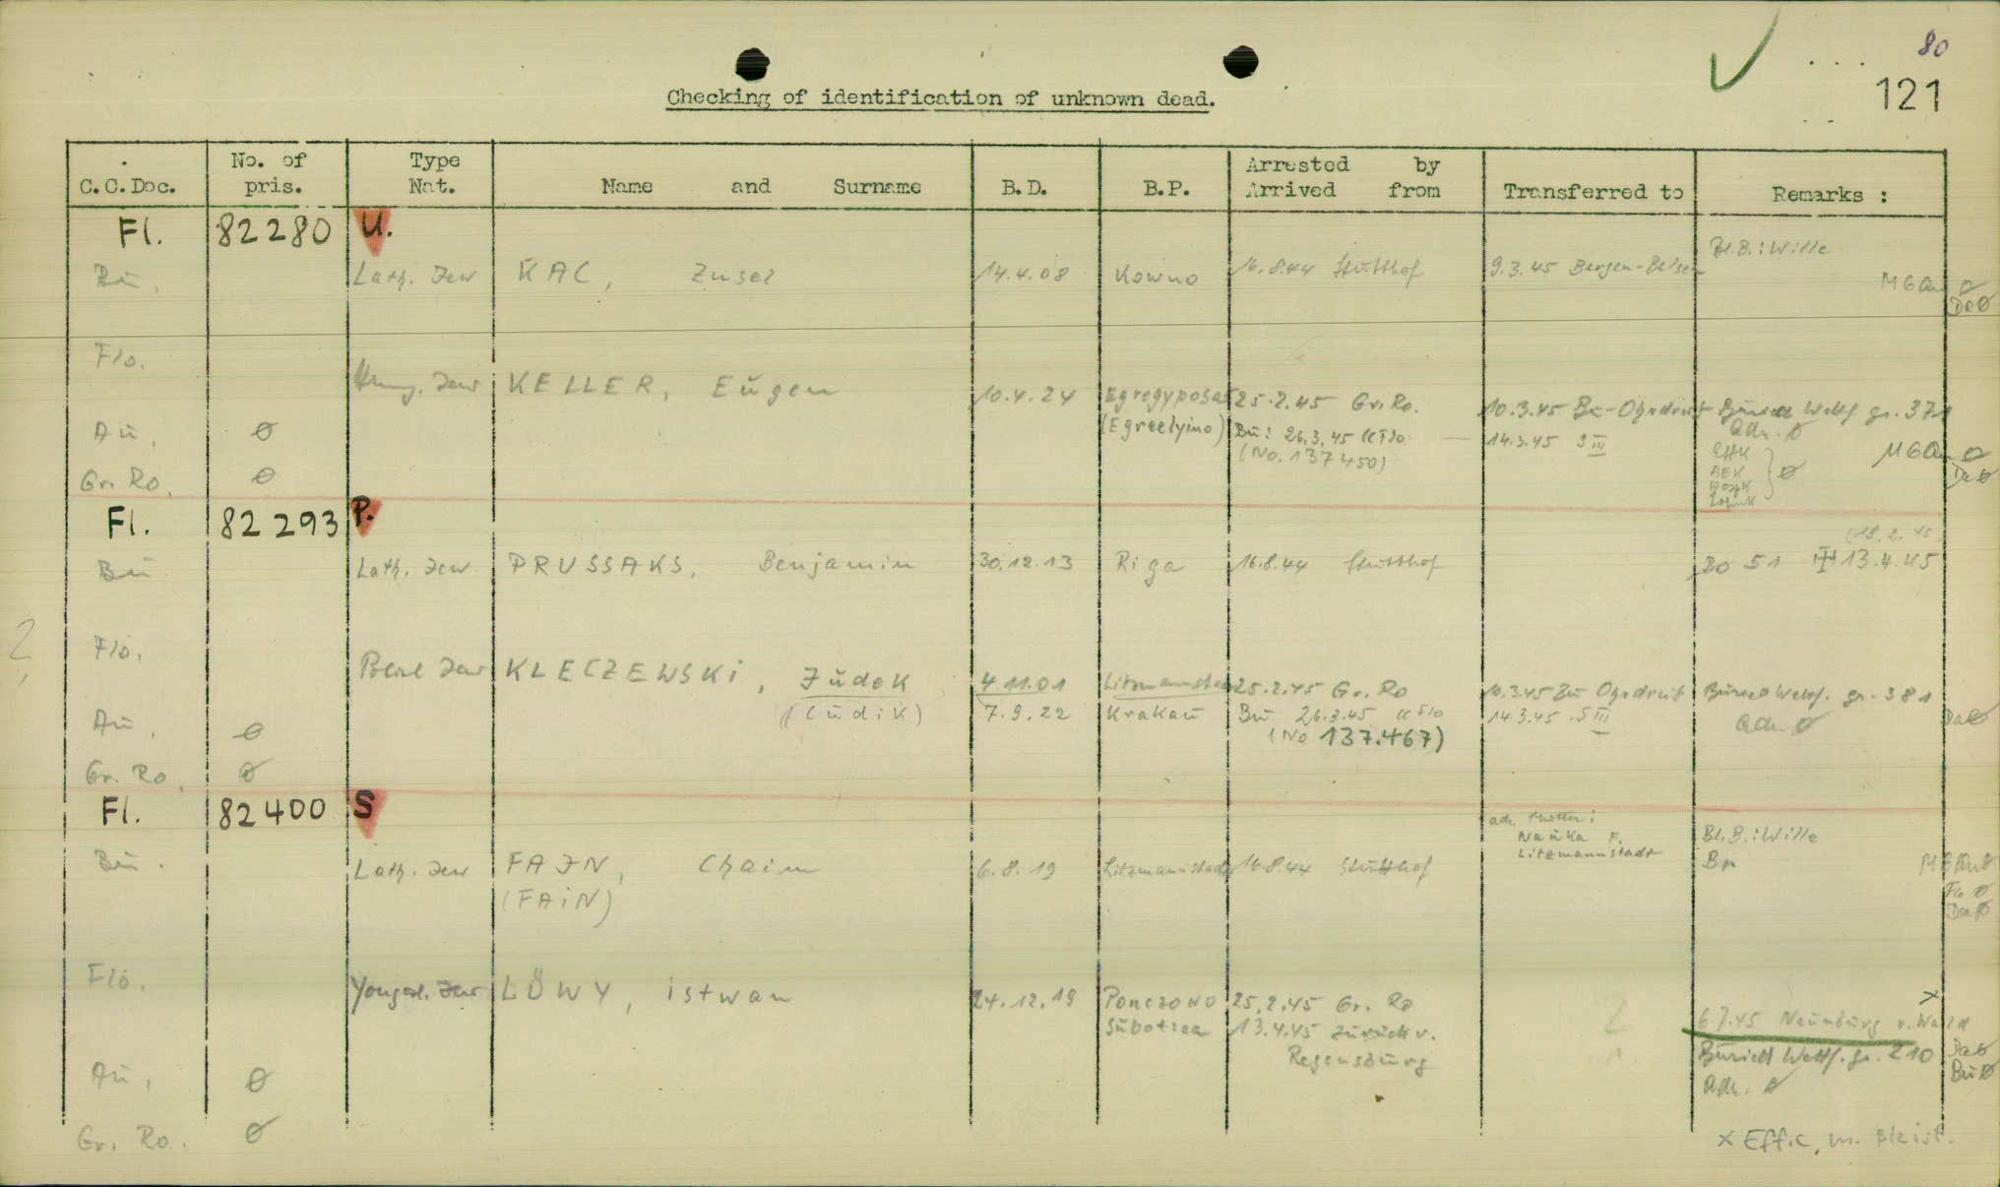 80
121
Checking of identification of unknown dead.
C.C.Doc. No. of pris. Type Nat. Name and Surname B.D. B.P. Arrested by Arrived from Transferred to Remarks :
Fl. 82280 U.
Bl.B.: Wille
Bu. Lath. Jew KAC, Zusel 14.4.08 Kowno 16.8.44 Stutthof 9.3.45 Bergen-Belsen
Flo.
Hung. Jew KELLER, Eugen 10.4.24 25.2.45 Gr. Ro. 10.3.45 Bu-Ohrdruf Buried Wetf. gr. 371
(Egreelyimo) Bu: 26.3.45 KLFlo. 14.3.45 S III Adr. ø
(No. 137450)
Au. ø
Gr. Ro. ø
Fl. 82293 P.
(18.2.45)
Bu Lath. Jew PRUSSAKS, Benjamin 30.12.13 Riga 16.8.44 Stutthof Bo 51 13.4.45
2
Flo.
Jew KLECZEWSKi, Judek 4.11.01 Litzmannstadt 25.2.45 Gr. Ro 10.3.45 Bu Ohrdruf Buried Wetf. gr. 381
(Ludik) 7.9.22 Krakau Bu 26.3.45 KLFlo 14.3.45 S III Adr. ø
(No 137.467)
Au. ø
Gr. Ro. ø
Fl. 82400 S
adr. Mutter:
Nauka F.
Litzmannstadt
Bl.B.: Wille
Bu. Lath. Jew FAJN, Chaim 6.8.19 Litzmannstadt 16.8.44 Stutthof
(FAiN)
Flo.
Yougosl. Jew LÖWY, istwan 24.12.19 Ponczowo 25.2.45 Gr. Ro
Subotica 13.4.45 zurück v. Regensburg
x
6.7.45 Neunburg v. Wald
Buried Wetf. gr. 210
Adr. ø
Au. ø
Gr. Ro. ø
x Effk. m. Bleist.